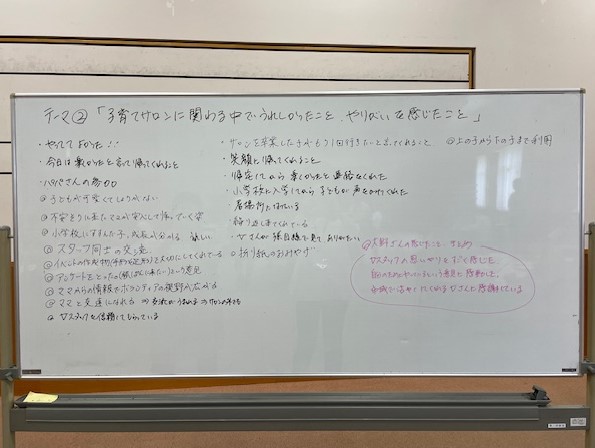 テーマ②「子育てサロンに関わる中でうれしかったこと、やりがいを感じたこと」
・やってて よかった!!
・今日は楽しかったと言って帰ってくれること
・パパさんの参加
@子どもが可愛くてしょうがない
@不安そうに来たママが安心して帰っていく姿
@小学校に 成長が分かる 嬉しい
@スタッフ同士の交流
@イベントの作品物(手形や足形)を大切にしてくれている
@アンケートをとったら という意見
@ママからの情報でボランティアの視野が広がる
@ママと友達になれる ⇒
@スタッフを信頼してもらっている
・サロンを卒業した子がもう1回行きたいと言ってくれること
・笑顔で帰ってくれること
・帰宅してから楽しかったと連絡をくれた
・小学校に入学してから子どもが声をかけてくれた
・居場所になっている
・繰り返し来てくれている
・皆さんが 目線で見て、ありがたい
@折り紙のおみやげ
@上の子から下の子まで利用
@大野さんの感じたこと、まとめ
スタッフの思いやりをすごく感じた
という意見に感動した
皆さんに感謝をしている